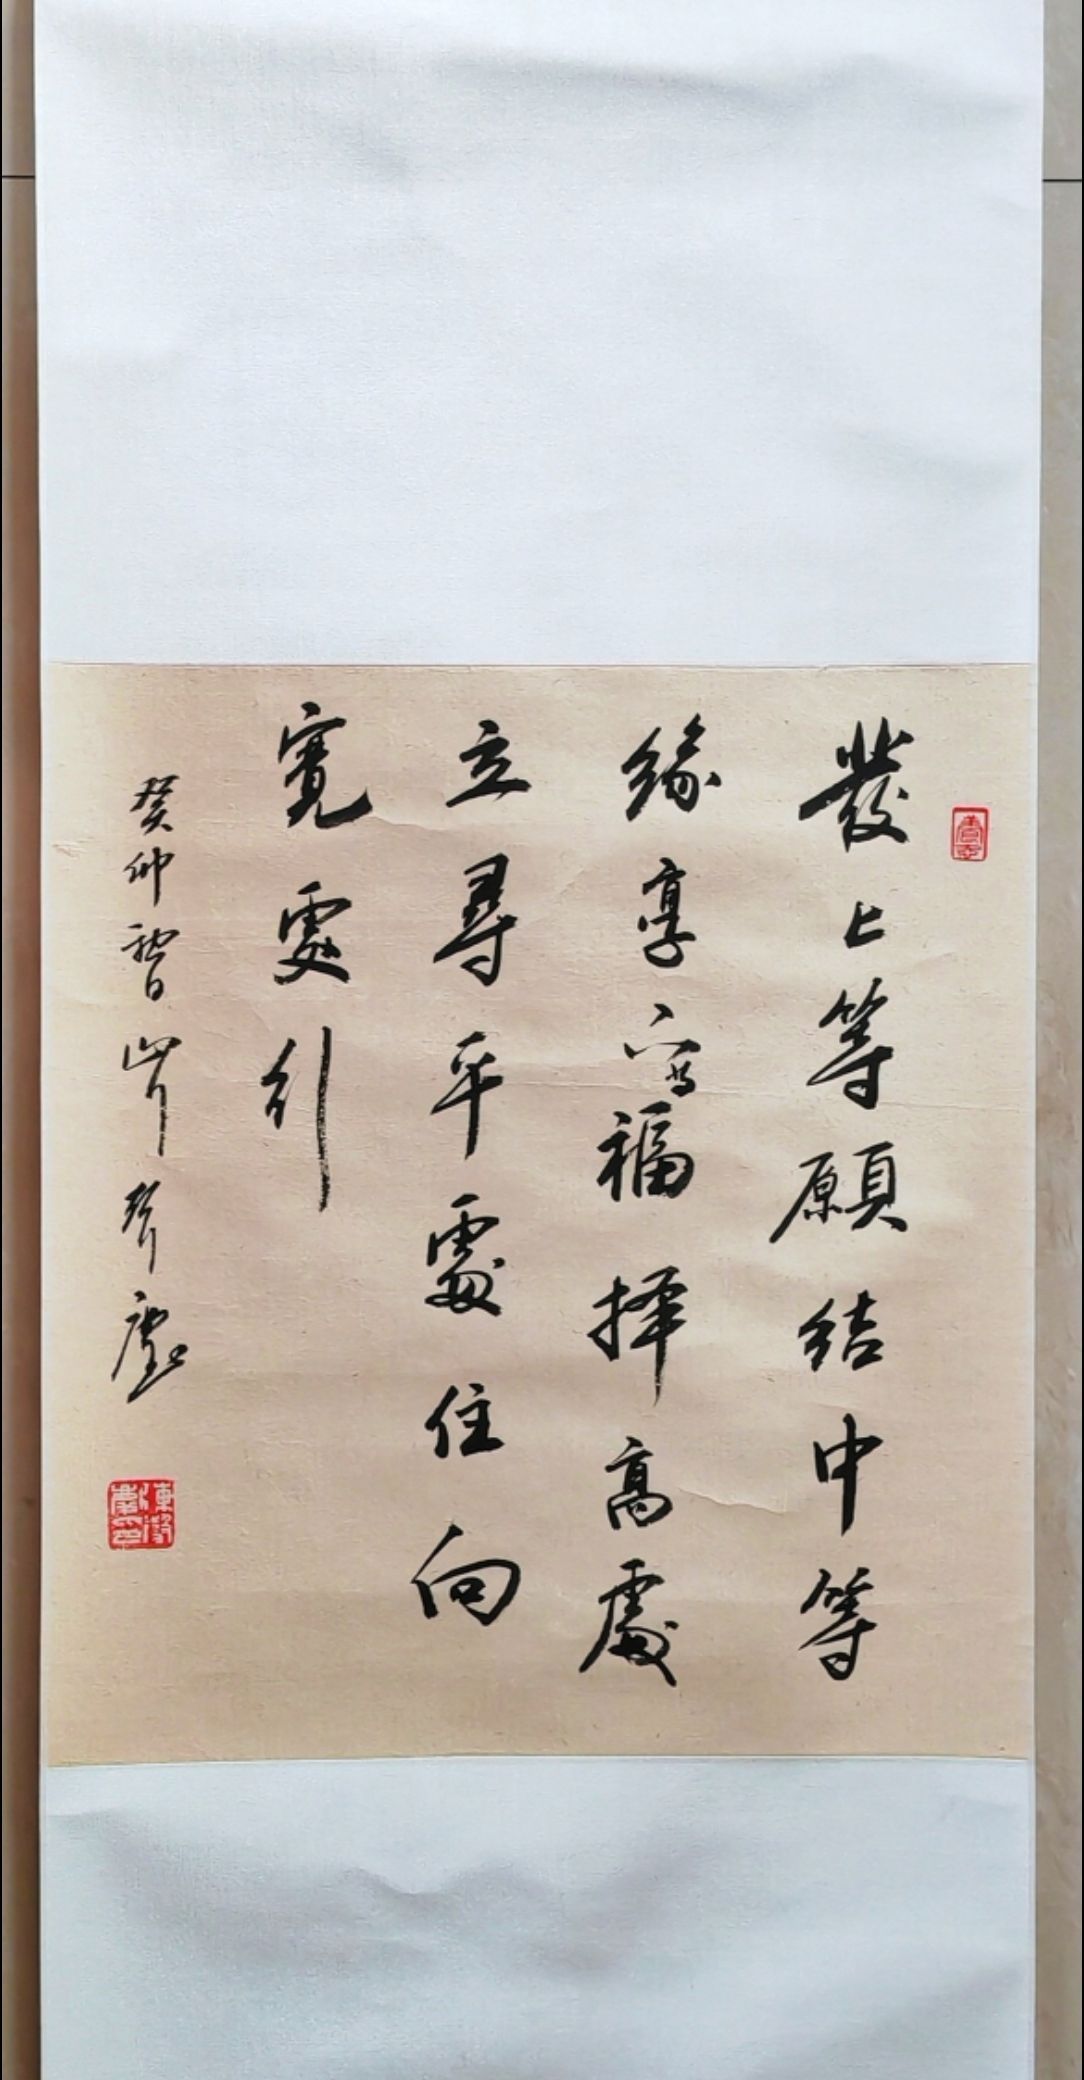 發上等願結中等
緣享下等福擇高處
立尋平處住向
寬處行
癸卯